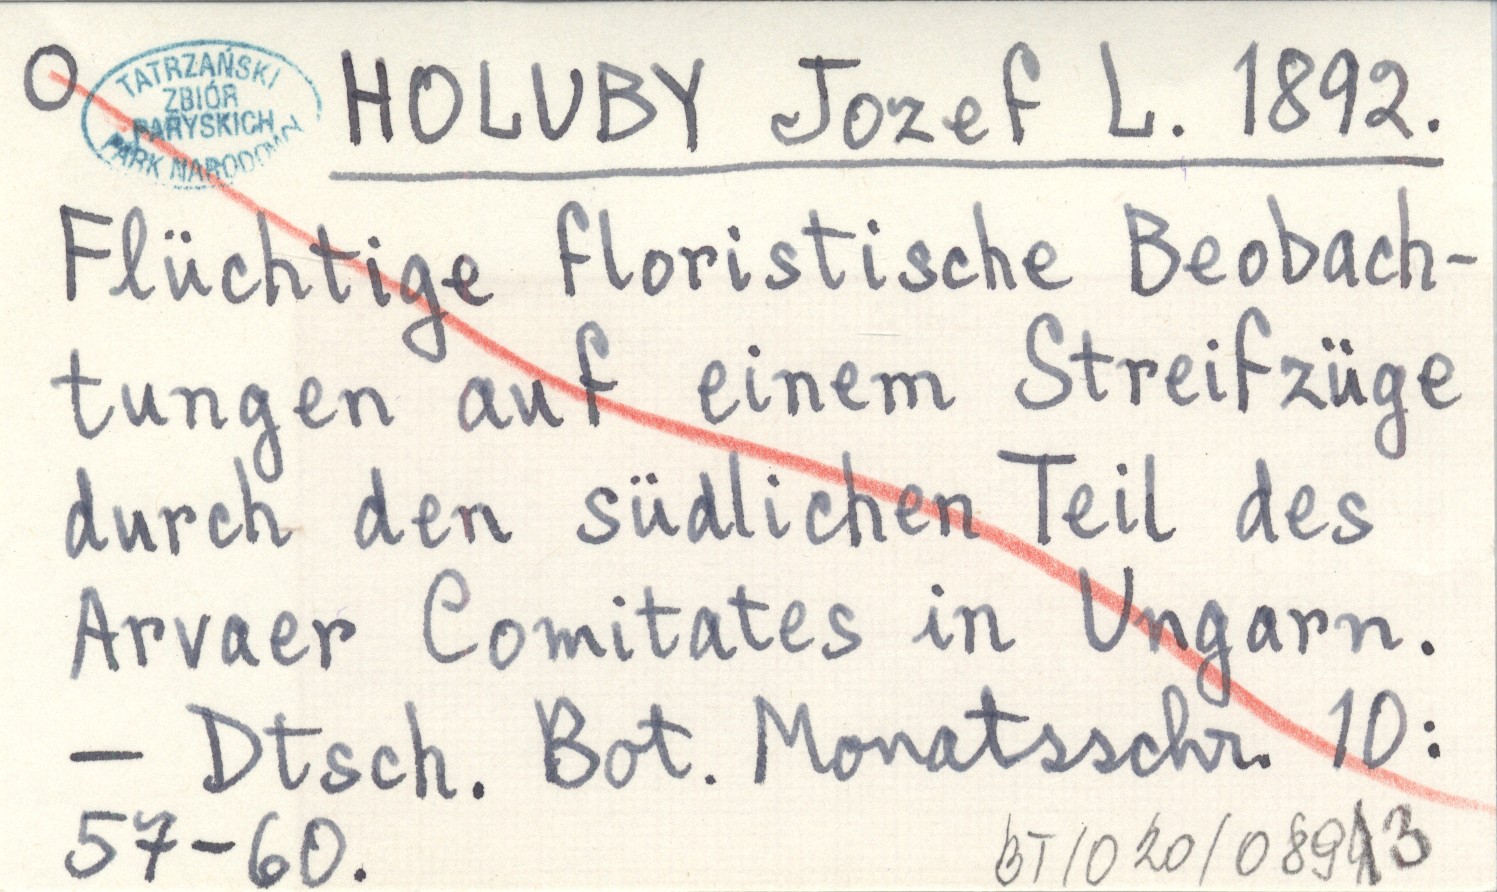 O
TATRZAŃSKI
ZBIÓR
PARYSKICH
PARK NARODOWY
HOLUBY Jozef L. 1892.
Flüchtige floristische Beobach-
tungen auf einem Streifzüge
durch den südlichen Teil des
Arvaer Comitates in Ungarn.
— Dtsch. Bot. Monatsschr. 10:
57-60.
BT/020/089